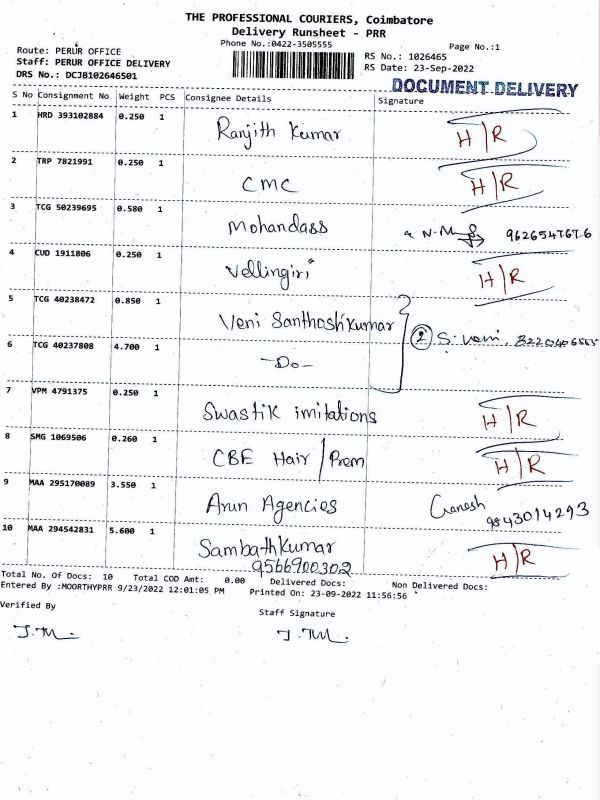 THE PROFESSIONAL COURIERS, Coimbatore
Delivery Runsheet - PRR
Phone No.:0422-3505555
Page No.:1
Route: PERUR OFFICE
Staff: PERUR OFFICE DELIVERY
DRS No.: DCJB102646501
RS No.: 1026465
RS Date: 23-Sep-2022
DOCUMENT DELIVERY
S No Consignment No Weight PCS Consignee Details Signature
1 HRD 393102884 0.250 1 Ranjith Kumar H/R
2 TRP 7821991 0.250 1 CMC H/R
3 TCG 50239695 0.580 1 Mohandass N.M 9626547676
4 CUD 1911806 0.250 1 Vellingiri H/R
5 TCG 40238472 0.850 1 Veni Santhoshkumar
② S. Veni,
6 TCG 40237808 4.700 1 -Do-
7 VPM 4791375 0.250 1 Swastik imitations H/R
8 SMG 1069506 0.260 1 CBE Hair / Prem H/R
9 MAA 295170089 3.550 1 Arun Agencies Ganesh
9843014293
10 MAA 294542831 5.600 1 Sambathkumar H/R
9566900302
Total No. Of Docs: 10 Total COD Amt: 0.00 Delivered Docs: Non Delivered Docs:
Entered By :MOORTHYPRR 9/23/2022 12:01:05 PM Printed On: 23-09-2022 11:56:56
Verified By
Staff Signature
J.M. J.M.